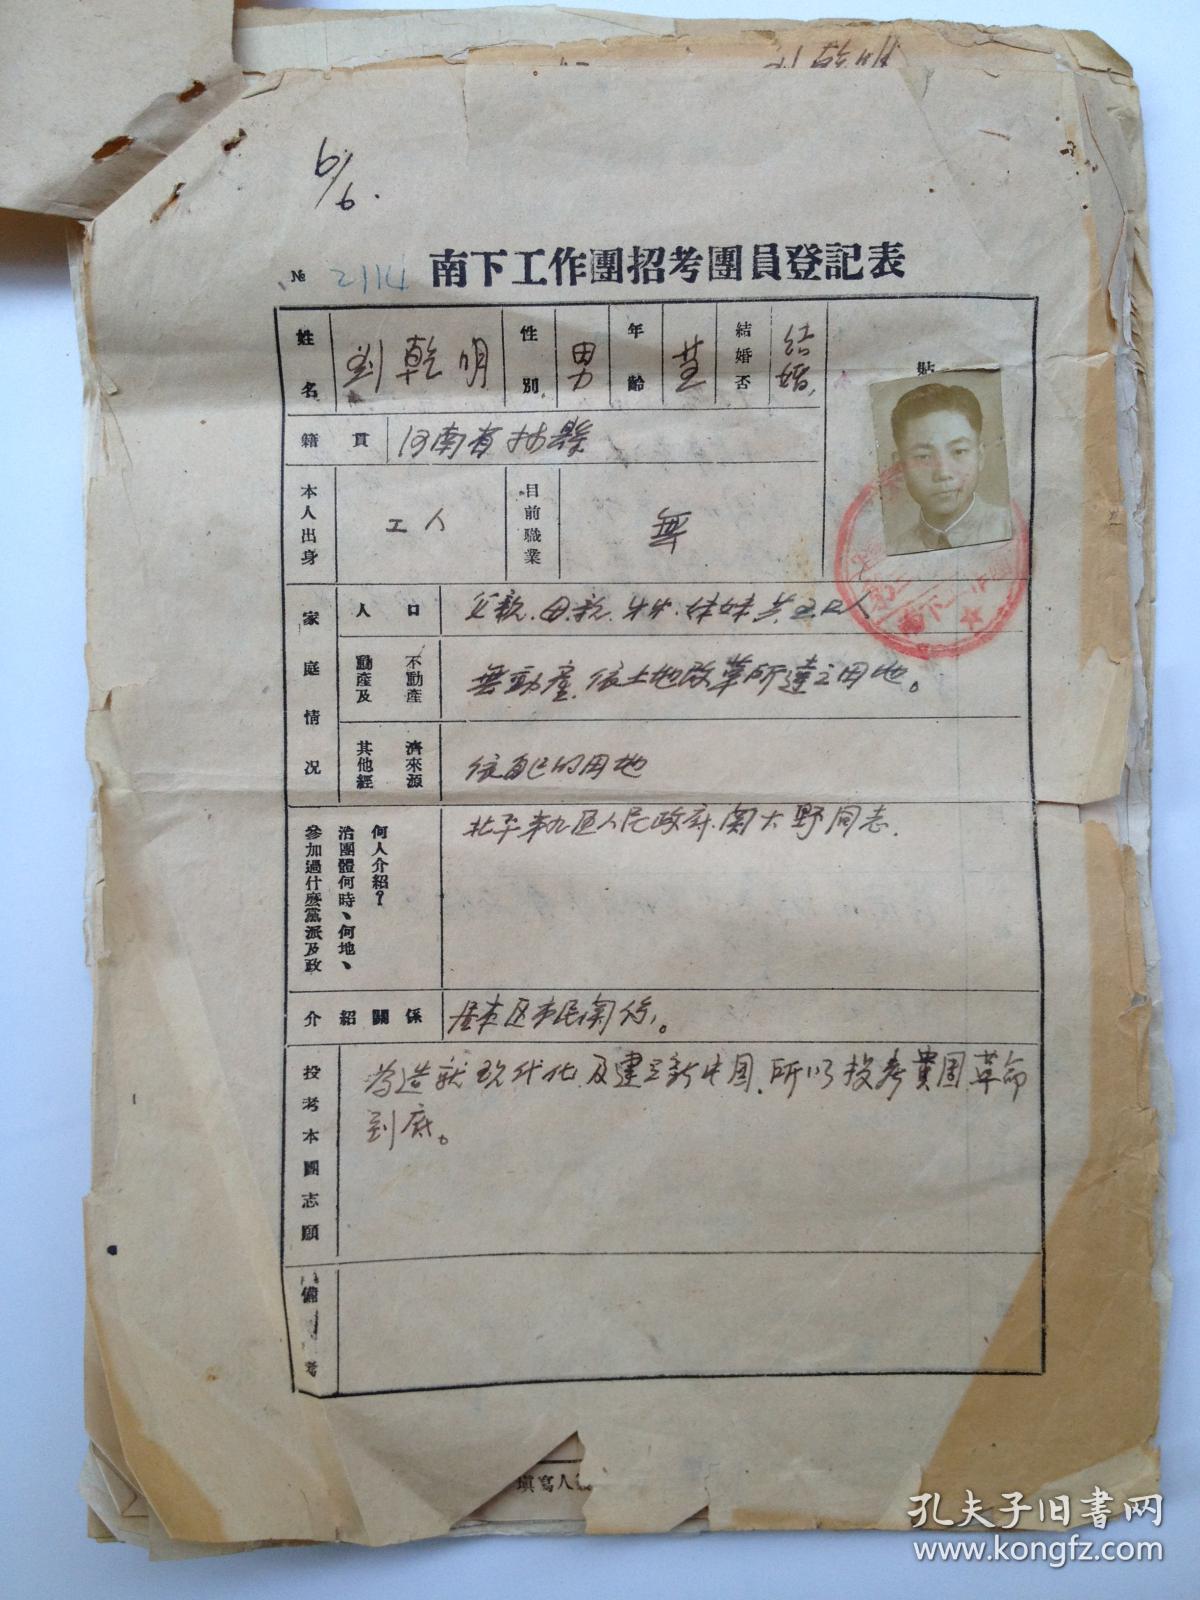 6/6.
№ 2114
南下工作團招考團員登記表
姓名 劉乾明 性別 男 年齡 結婚否 結婚
貼
籍貫 河南省 縣
本人出身 工人 目前職業 無
家庭情况
人口 父親.母親. 妹妹.共 口人
動產及不動產 無動產.依土地改革所 之田地。
其他經濟來源 依自己的田地
參加過什麼黨派及政治團體何時、何地、何人介紹？
北平第九区人民政府.関大野同志.
介紹關係 居本区市民関係。
投考本團志願
為造就現代化.及建立新中国.所以投考貴团.革命
到底。
備考
填寫人
孔夫子旧书网
www.kongfz.com